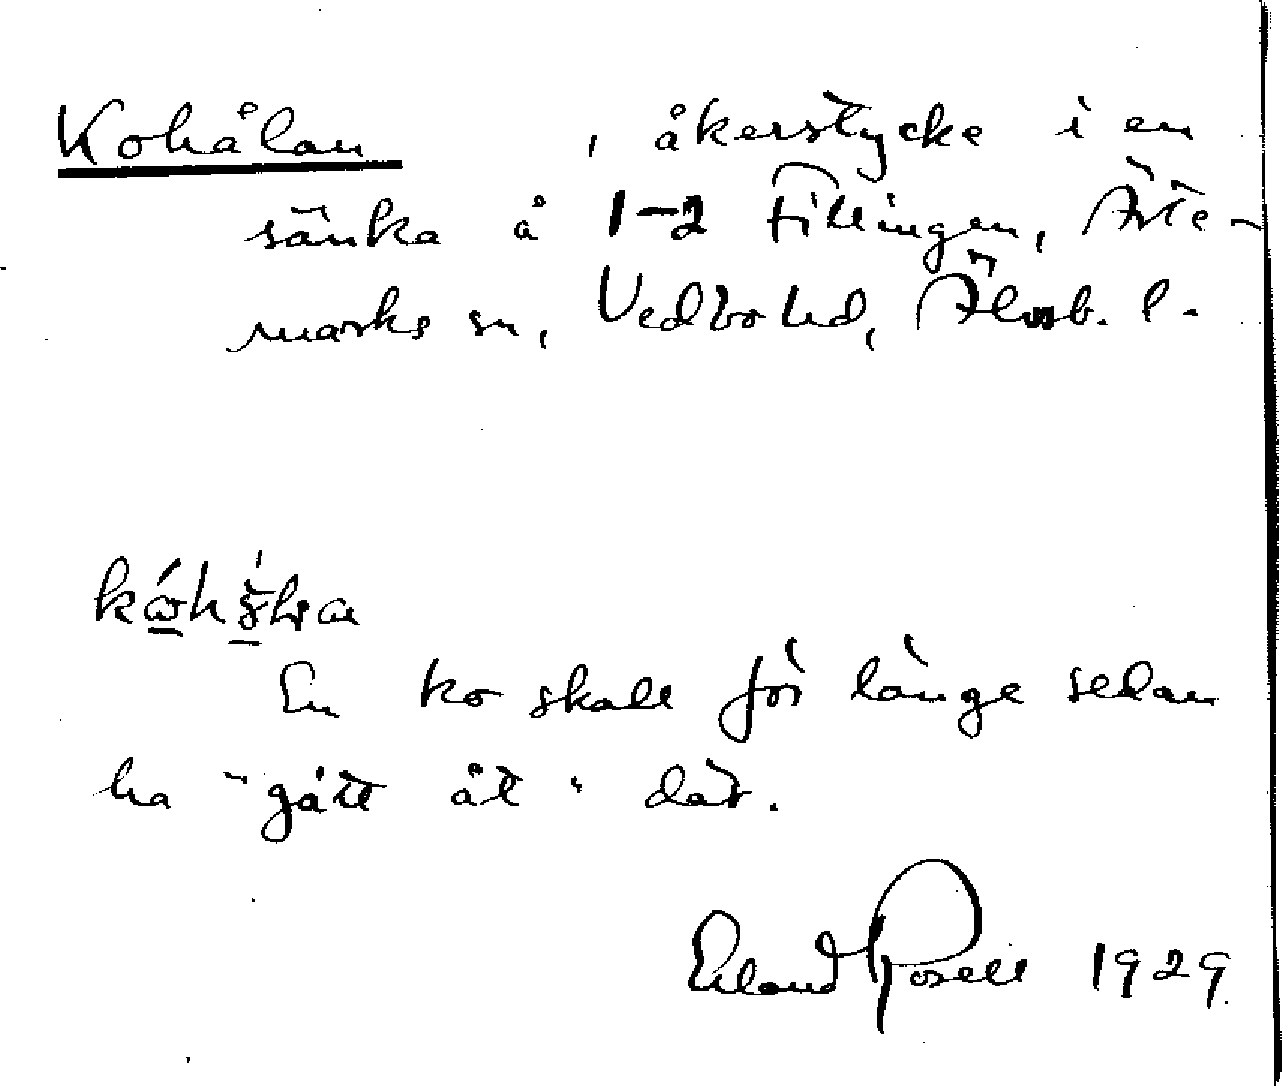 Kohålan , åkerstycke i en
sänka å 1-2 Tillingen, Ärte-
marks sn, Vedbo hd, Älvsb. l.
En ko skall för länge sedan
ha "gått åt" där.
Erland Rosell 1929